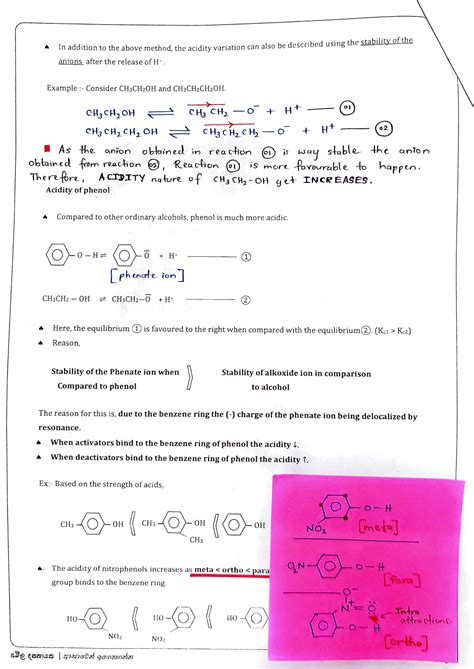 ▲ In addition to the above method, the acidity variation can also be described using the stability of the
anions after the release of H⁺.
Example :- Consider CH3CH2OH and CH3CH2CH2OH.
CH3CH2OH ⇌ CH3 CH2 – O⁻ + H⁺ —— 01
CH3CH2CH2OH ⇌ CH3CH2CH2 – O⁻ + H⁺ —— 02
■ As the anion obtained in reaction 01 is way stable the anion
obtained from reaction 02, Reaction 01 is more favourable to happen.
Therefore, ACIDITY nature of CH3CH2-OH get INCREASES.
Acidity of phenol
▲ Compared to other ordinary alcohols, phenol is much more acidic.
– O – H ⇌ – O + H⁺ —— ①
[phenate ion]
CH3CH2 – OH ⇌ CH3CH2–O + H⁺ —— ②
▲ Here, the equilibrium ① is favoured to the right when compared with the equilibrium②. (Kc1 > Kc2)
▲ Reason,
Stability of the Phenate ion when
Compared to phenol
Stability of alkoxide ion in comparison
to alcohol
The reason for this is, due to the benzene ring the (-) charge of the phenate ion being delocalized by
resonance.
▲ When activators bind to the benzene ring of phenol the acidity ↓.
▲ When deactivators bind to the benzene ring of phenol the acidity ↑.
Ex:- Based on the strength of acids,
CH3 – OH CH3 – OH OH
CH3
▲. The acidity of nitrophenols increases as meta < ortho < para
group binds to the benzene ring.
HO HO HO
NO2 NO2
O – H
NO2 [meta]
O2N O – H
[Para]
O⁻
N⁺ = O
Intra
attractions.
O – H
[ortho]